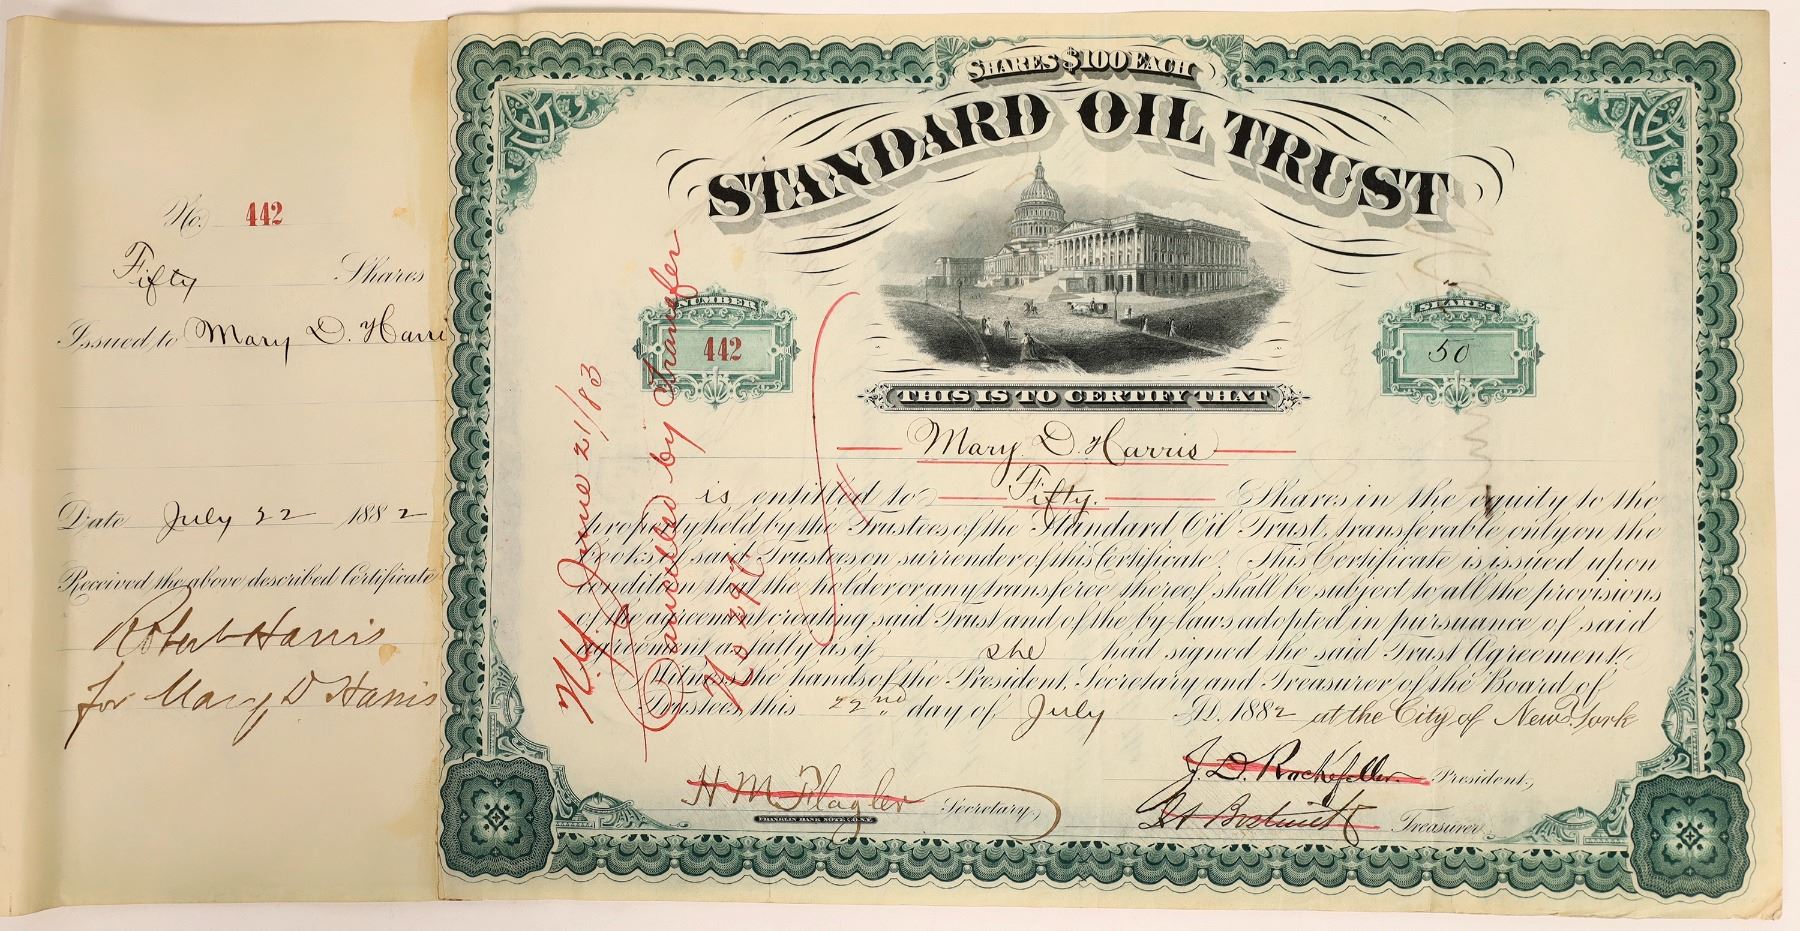 No. 442
Fifty Shares
Issued to Mary D. Harri
Date July 22 1882
Received the above described Certificate
Robert Harris
for Mary D Harris
SHARES $100 EACH
STANDARD OIL TRUST
NUMBER
442
SHARES
50
THIS IS TO CERTIFY THAT
Mary D. Harris
is entitled to Fifty. Shares in the equity to the
property held by the Trustees of the Standard Oil Trust, transferable only on the
Books of said Trustees on surrender of this Certificate. This Certificate is issued upon
condition that the holder or any transferee thereof shall be subject to all the provisions
of the agreement creating said Trust and of the by-laws adopted in pursuance of said
agreement as fully as if she had signed the said Trust Agreement.
Witness the hands of the President, Secretary and Treasurer of the Board of
Trustees, this 22nd day of July A.D. 1882 at the City of New York
J. D. Rockefeller President,
H M Flagler Secretary,
Bostwick Treasurer
FRANKLIN BANK NOTE CO. N.Y.
N.Y. June 21/83
Cancelled by Transfer
No 297